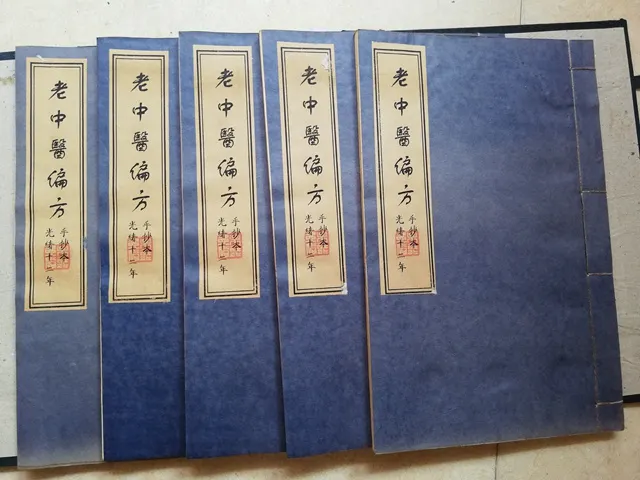 老中醫編方
手鈔本
光緒十二年
老中醫編方
手鈔本
光緒十二年
老中醫編方
手鈔本
光緒十二年
老中醫編方
手鈔本
光緒十二年
老中醫編方
手鈔本
光緒十二年